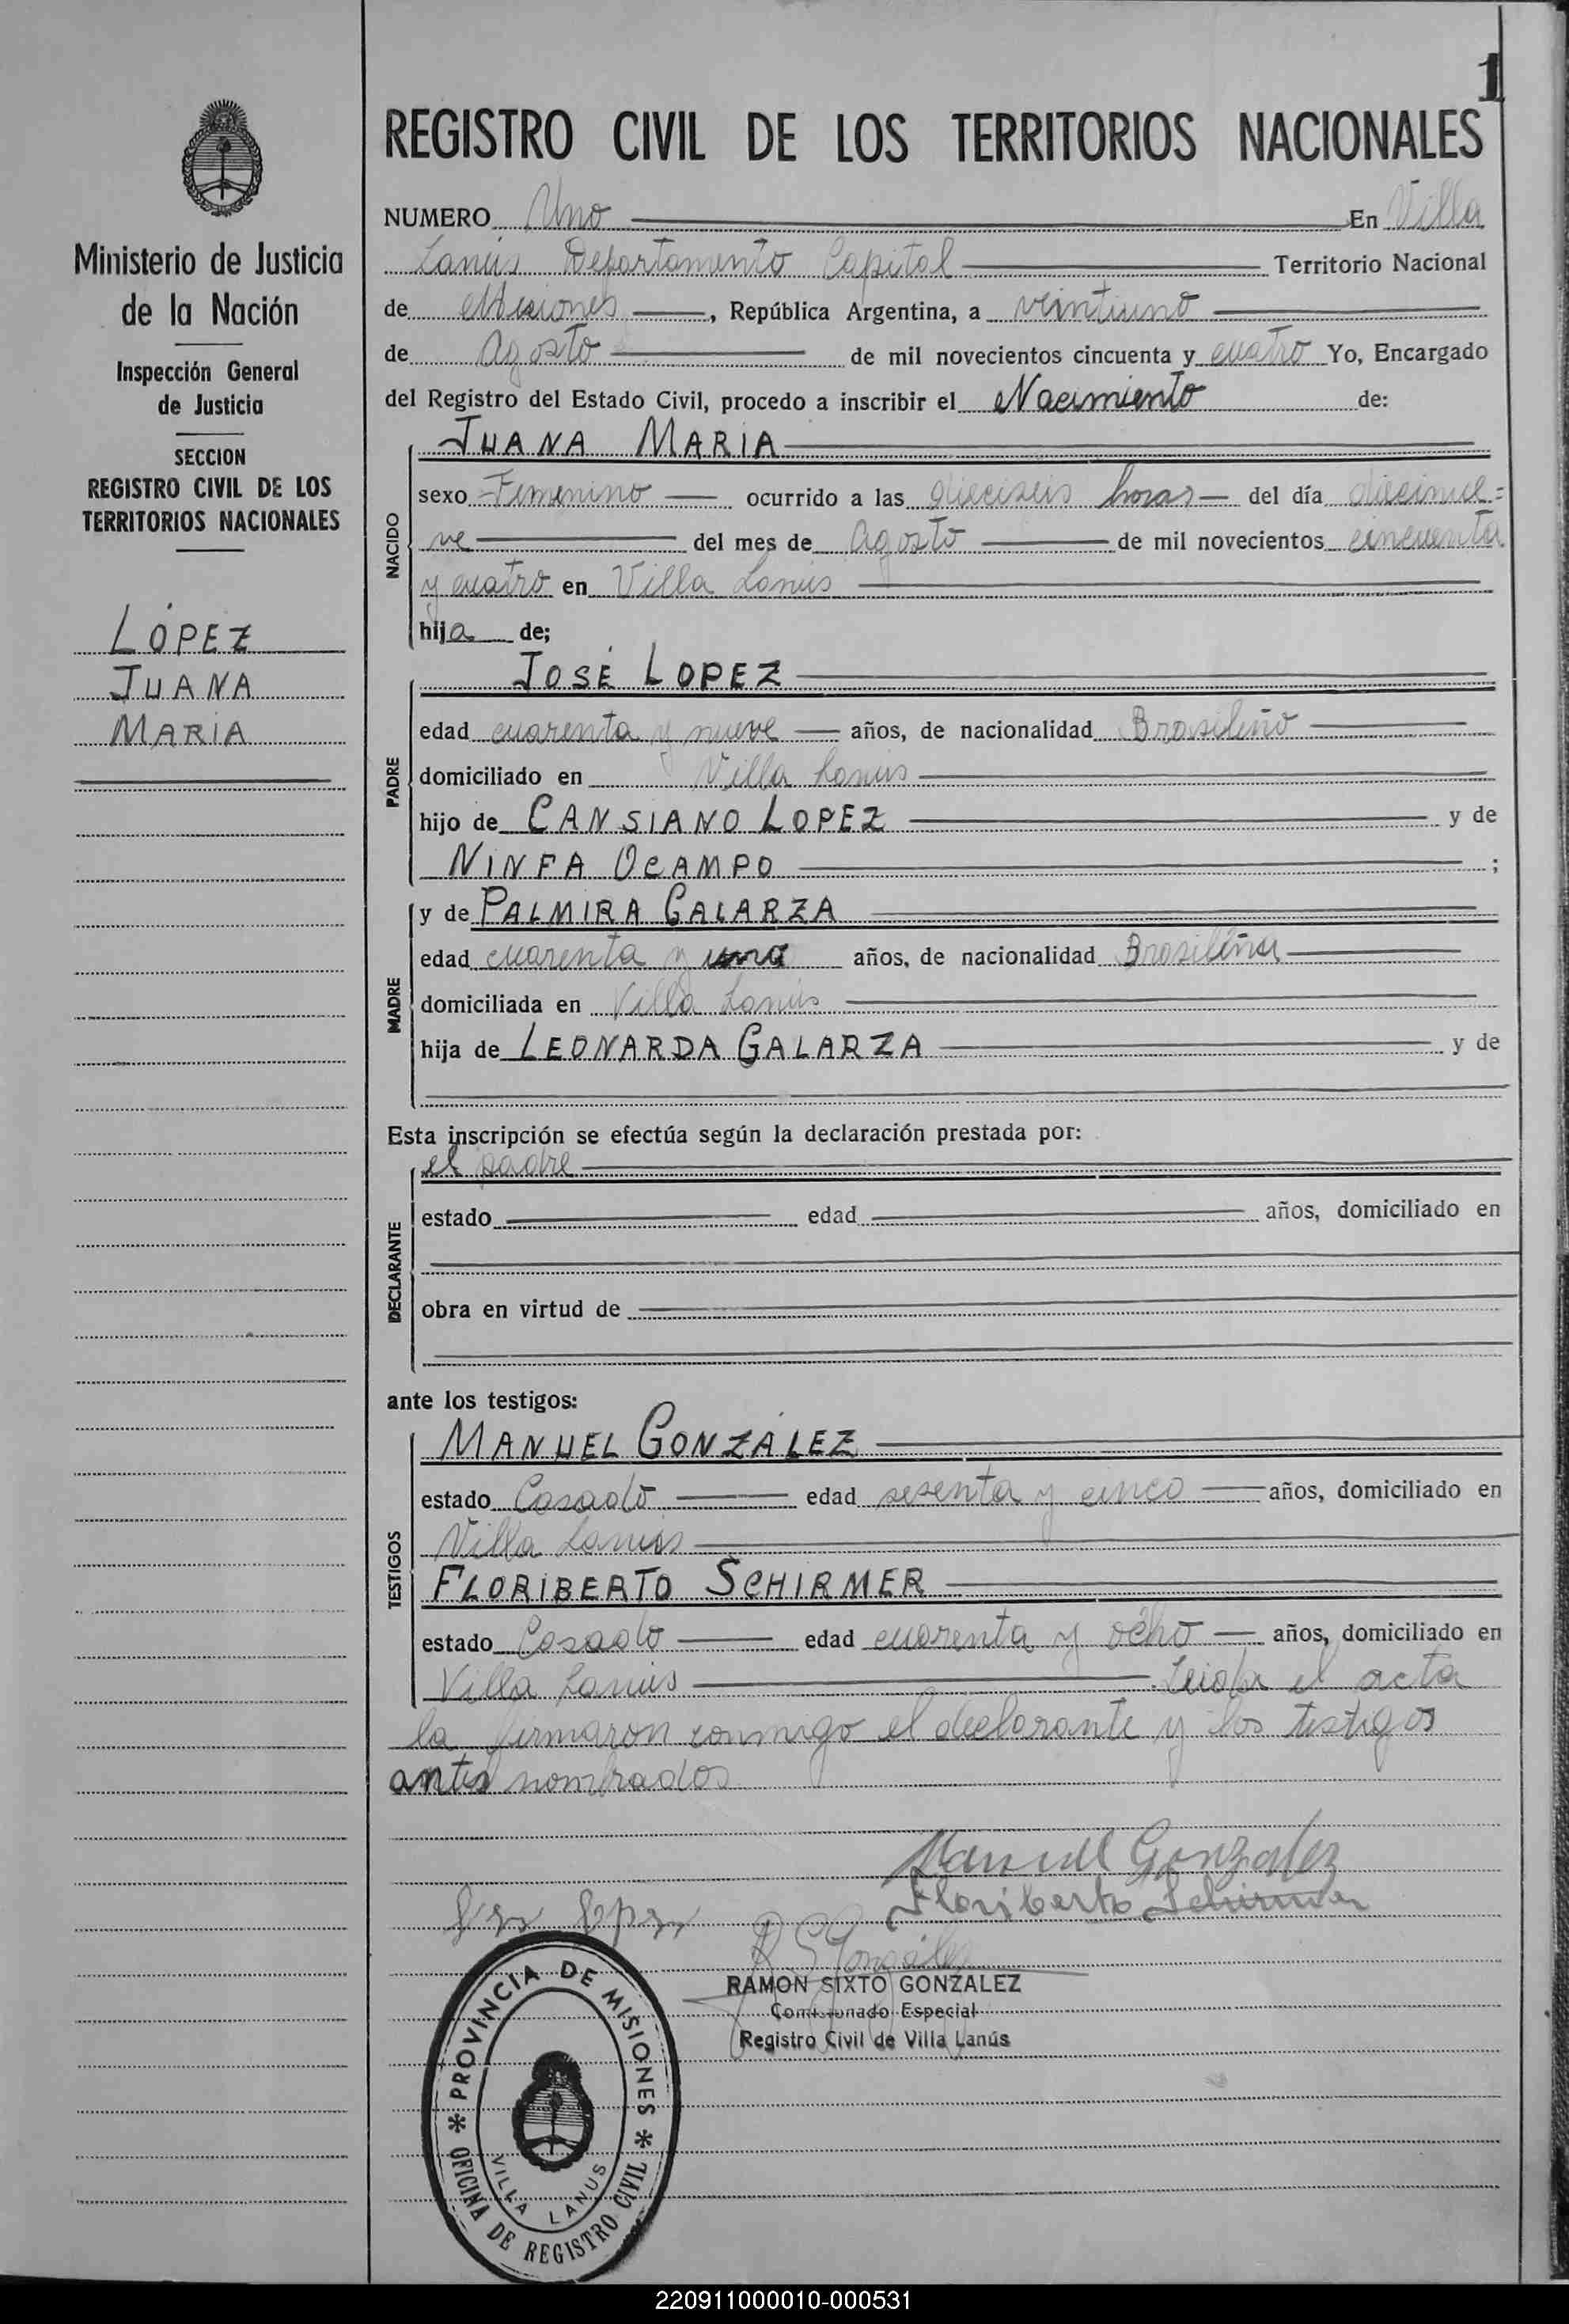 1
REGISTRO CIVIL DE LOS TERRITORIOS NACIONALES
Ministerio de Justicia
de la Nación
Inspección General
de Justicia
SECCION
REGISTRO CIVIL DE LOS
TERRITORIOS NACIONALES
LÓPEZ
JUANA
MARIA
NUMERO Uno En Villa
Lanús Departamento Capital Territorio Nacional
de Misiones, República Argentina, a veintiuno
de Agosto de mil novecientos cincuenta y cuatro Yo, Encargado
del Registro del Estado Civil, procedo a inscribir el Nacimiento de:
NACIDO
JUANA MARIA
sexo Femenino ocurrido a las dieciseis horas del día diecinue=
ve del mes de Agosto de mil novecientos cincuenta
y cuatro en Villa Lanús
hija de;
PADRE
JOSÉ LOPEZ
edad cuarenta y nueve años, de nacionalidad Brasileño
domiciliado en Villa Lanús
hijo de CANSIANO LOPEZ y de
NINFA OCAMPO ;
MADRE
y de PALMIRA GALARZA
edad cuarenta y una años, de nacionalidad Brasileña
domiciliada en Villa Lanús
hija de LEONARDA GALARZA y de
Esta inscripción se efectúa según la declaración prestada por:
DECLARANTE
el padre
estado edad años, domiciliado en
obra en virtud de
ante los testigos:
TESTIGOS
MANUEL GONZÁLEZ
estado Casado edad sesenta y cinco años, domiciliado en
Villa Lanús
FLORIBERTO SCHIRMER
estado Casado edad cuarenta y ocho años, domiciliado en
Villa Lanús Leida el acta
la firmaron conmigo el declarante y los testigos
antes nombrados
Manuel Gonzalez
Floriberto Schirmer
RAMON SIXTO GONZALEZ
Comisionado Especial
Registro Civil de Villa Lanús
* PROVINCIA DE MISIONES *
OFICINA DE REGISTRO CIVIL
VILLA LANUS
220911000010-000531